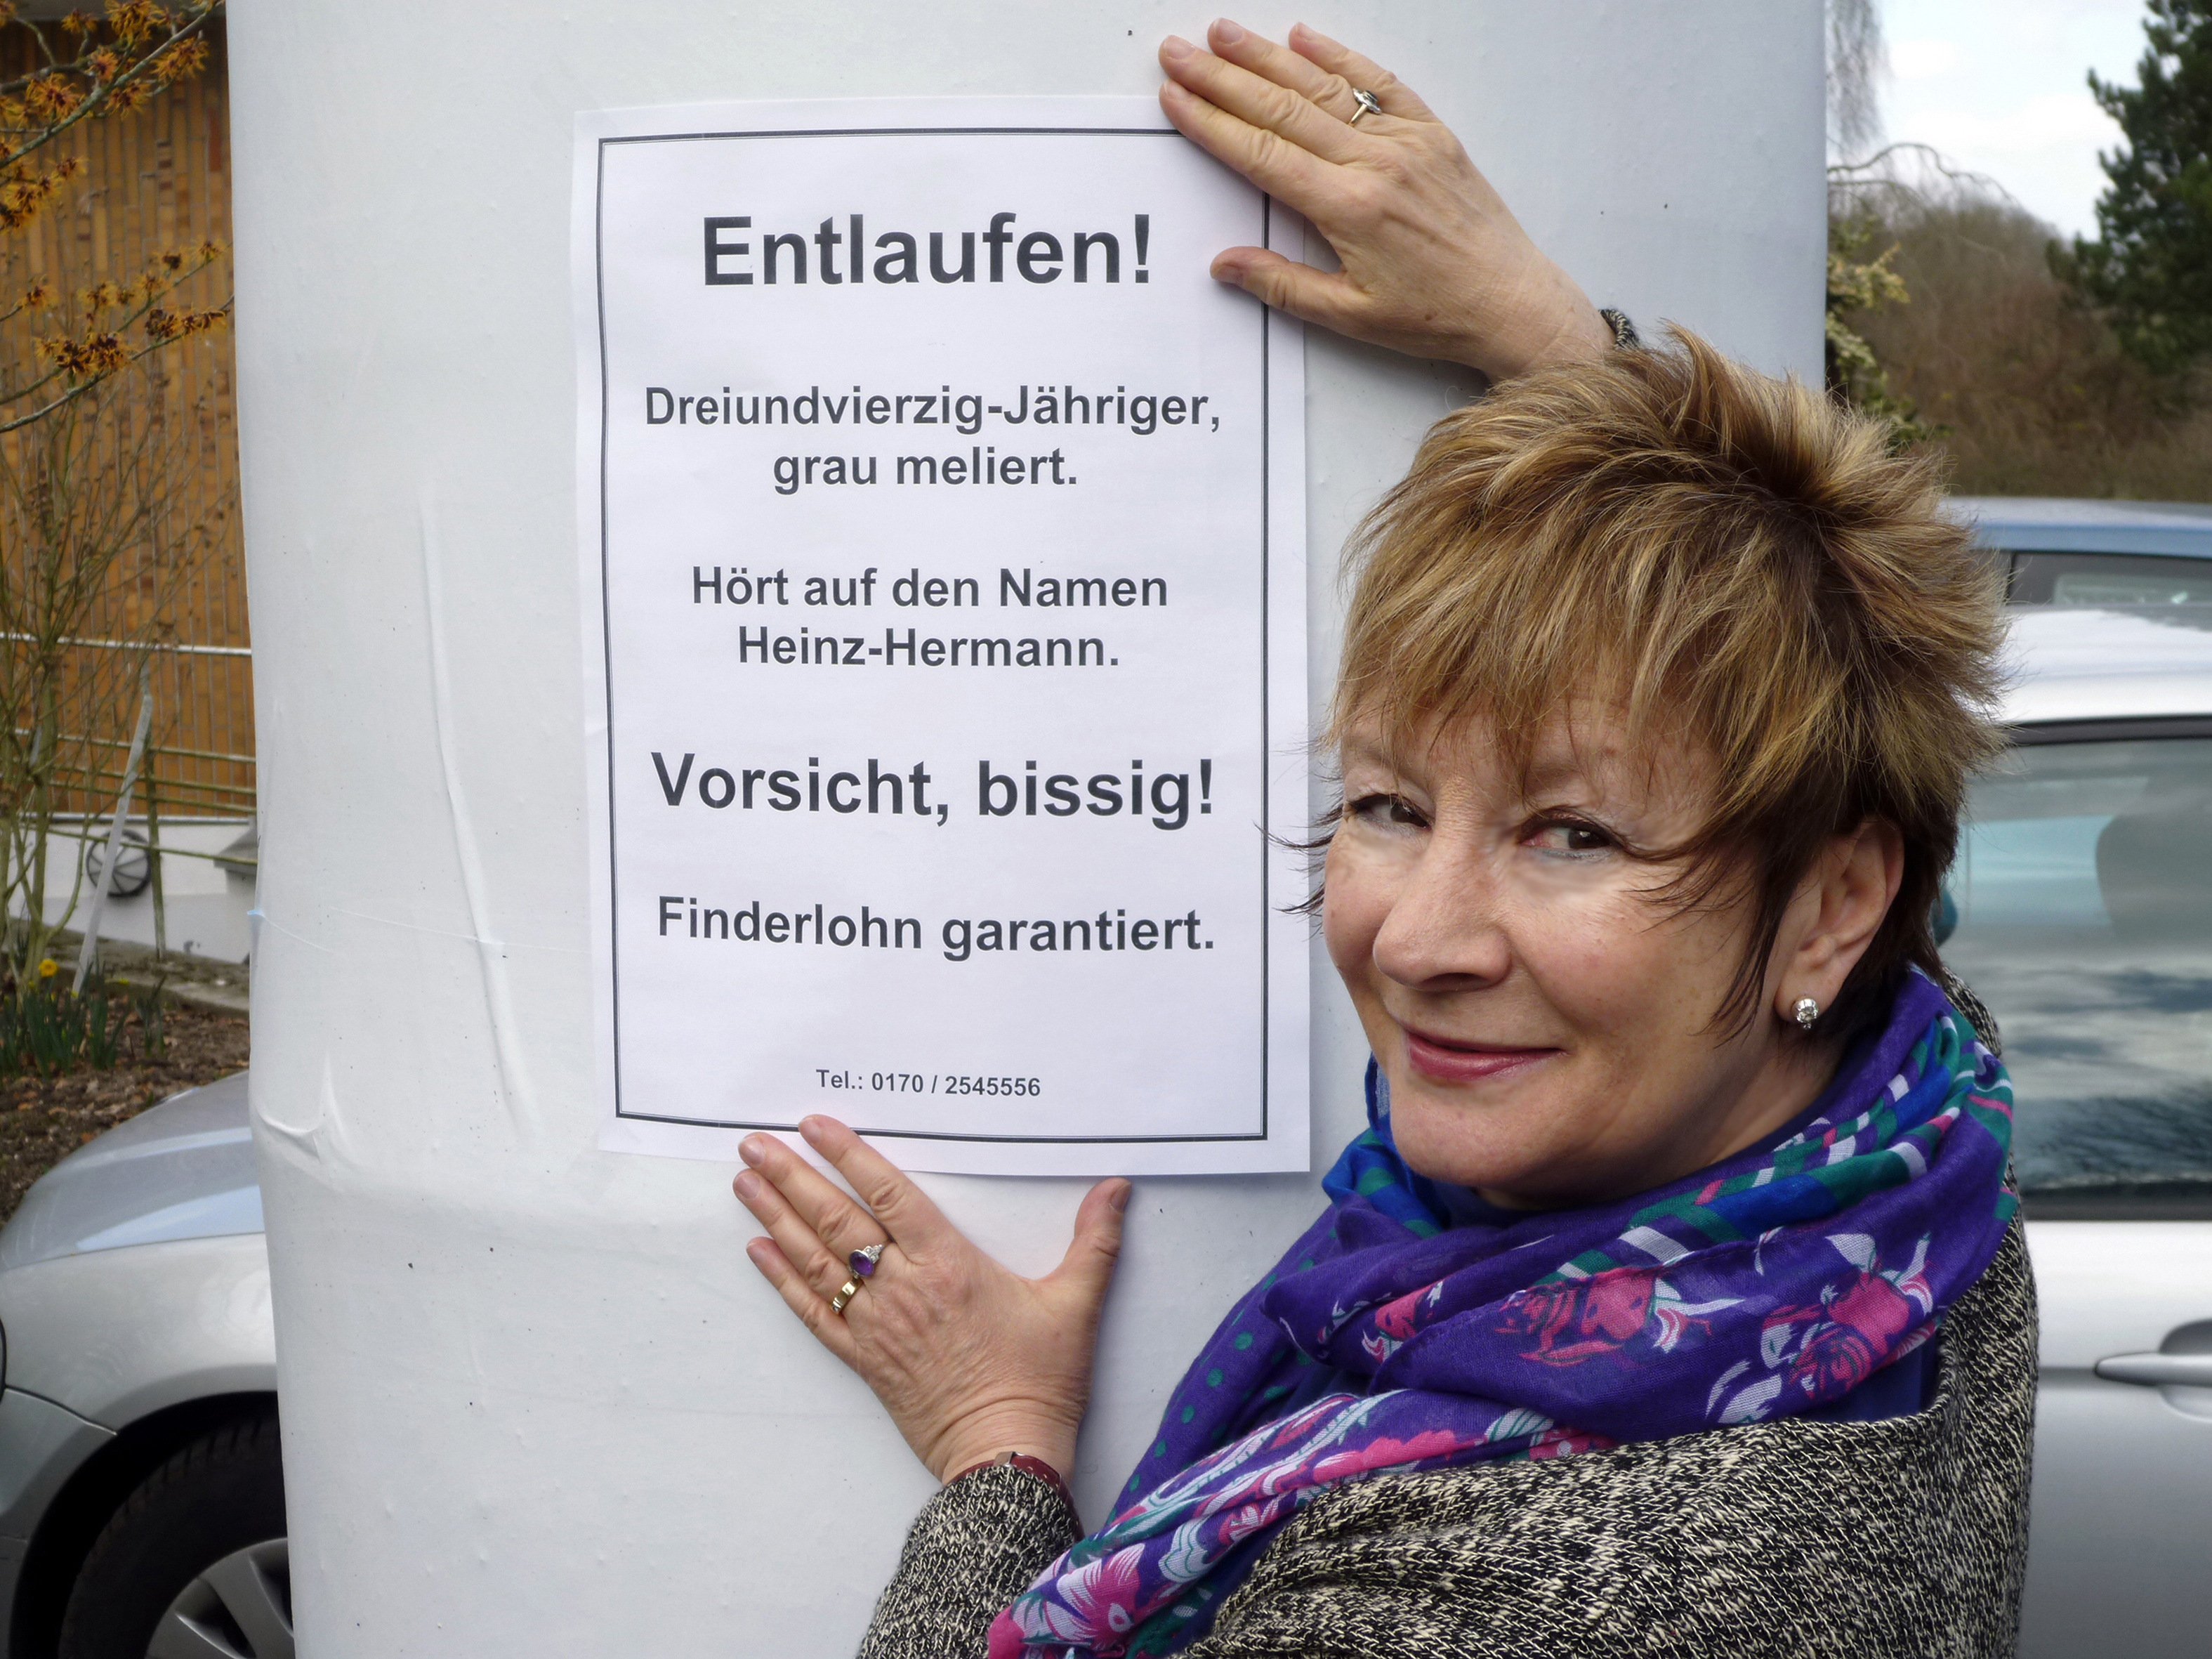 Entlaufen!
Dreiundvierzig-Jähriger,
grau meliert.
Hört auf den Namen
Heinz-Hermann.
Vorsicht, bissig!
Finderlohn garantiert.
Tel.: 0170 / 2545556